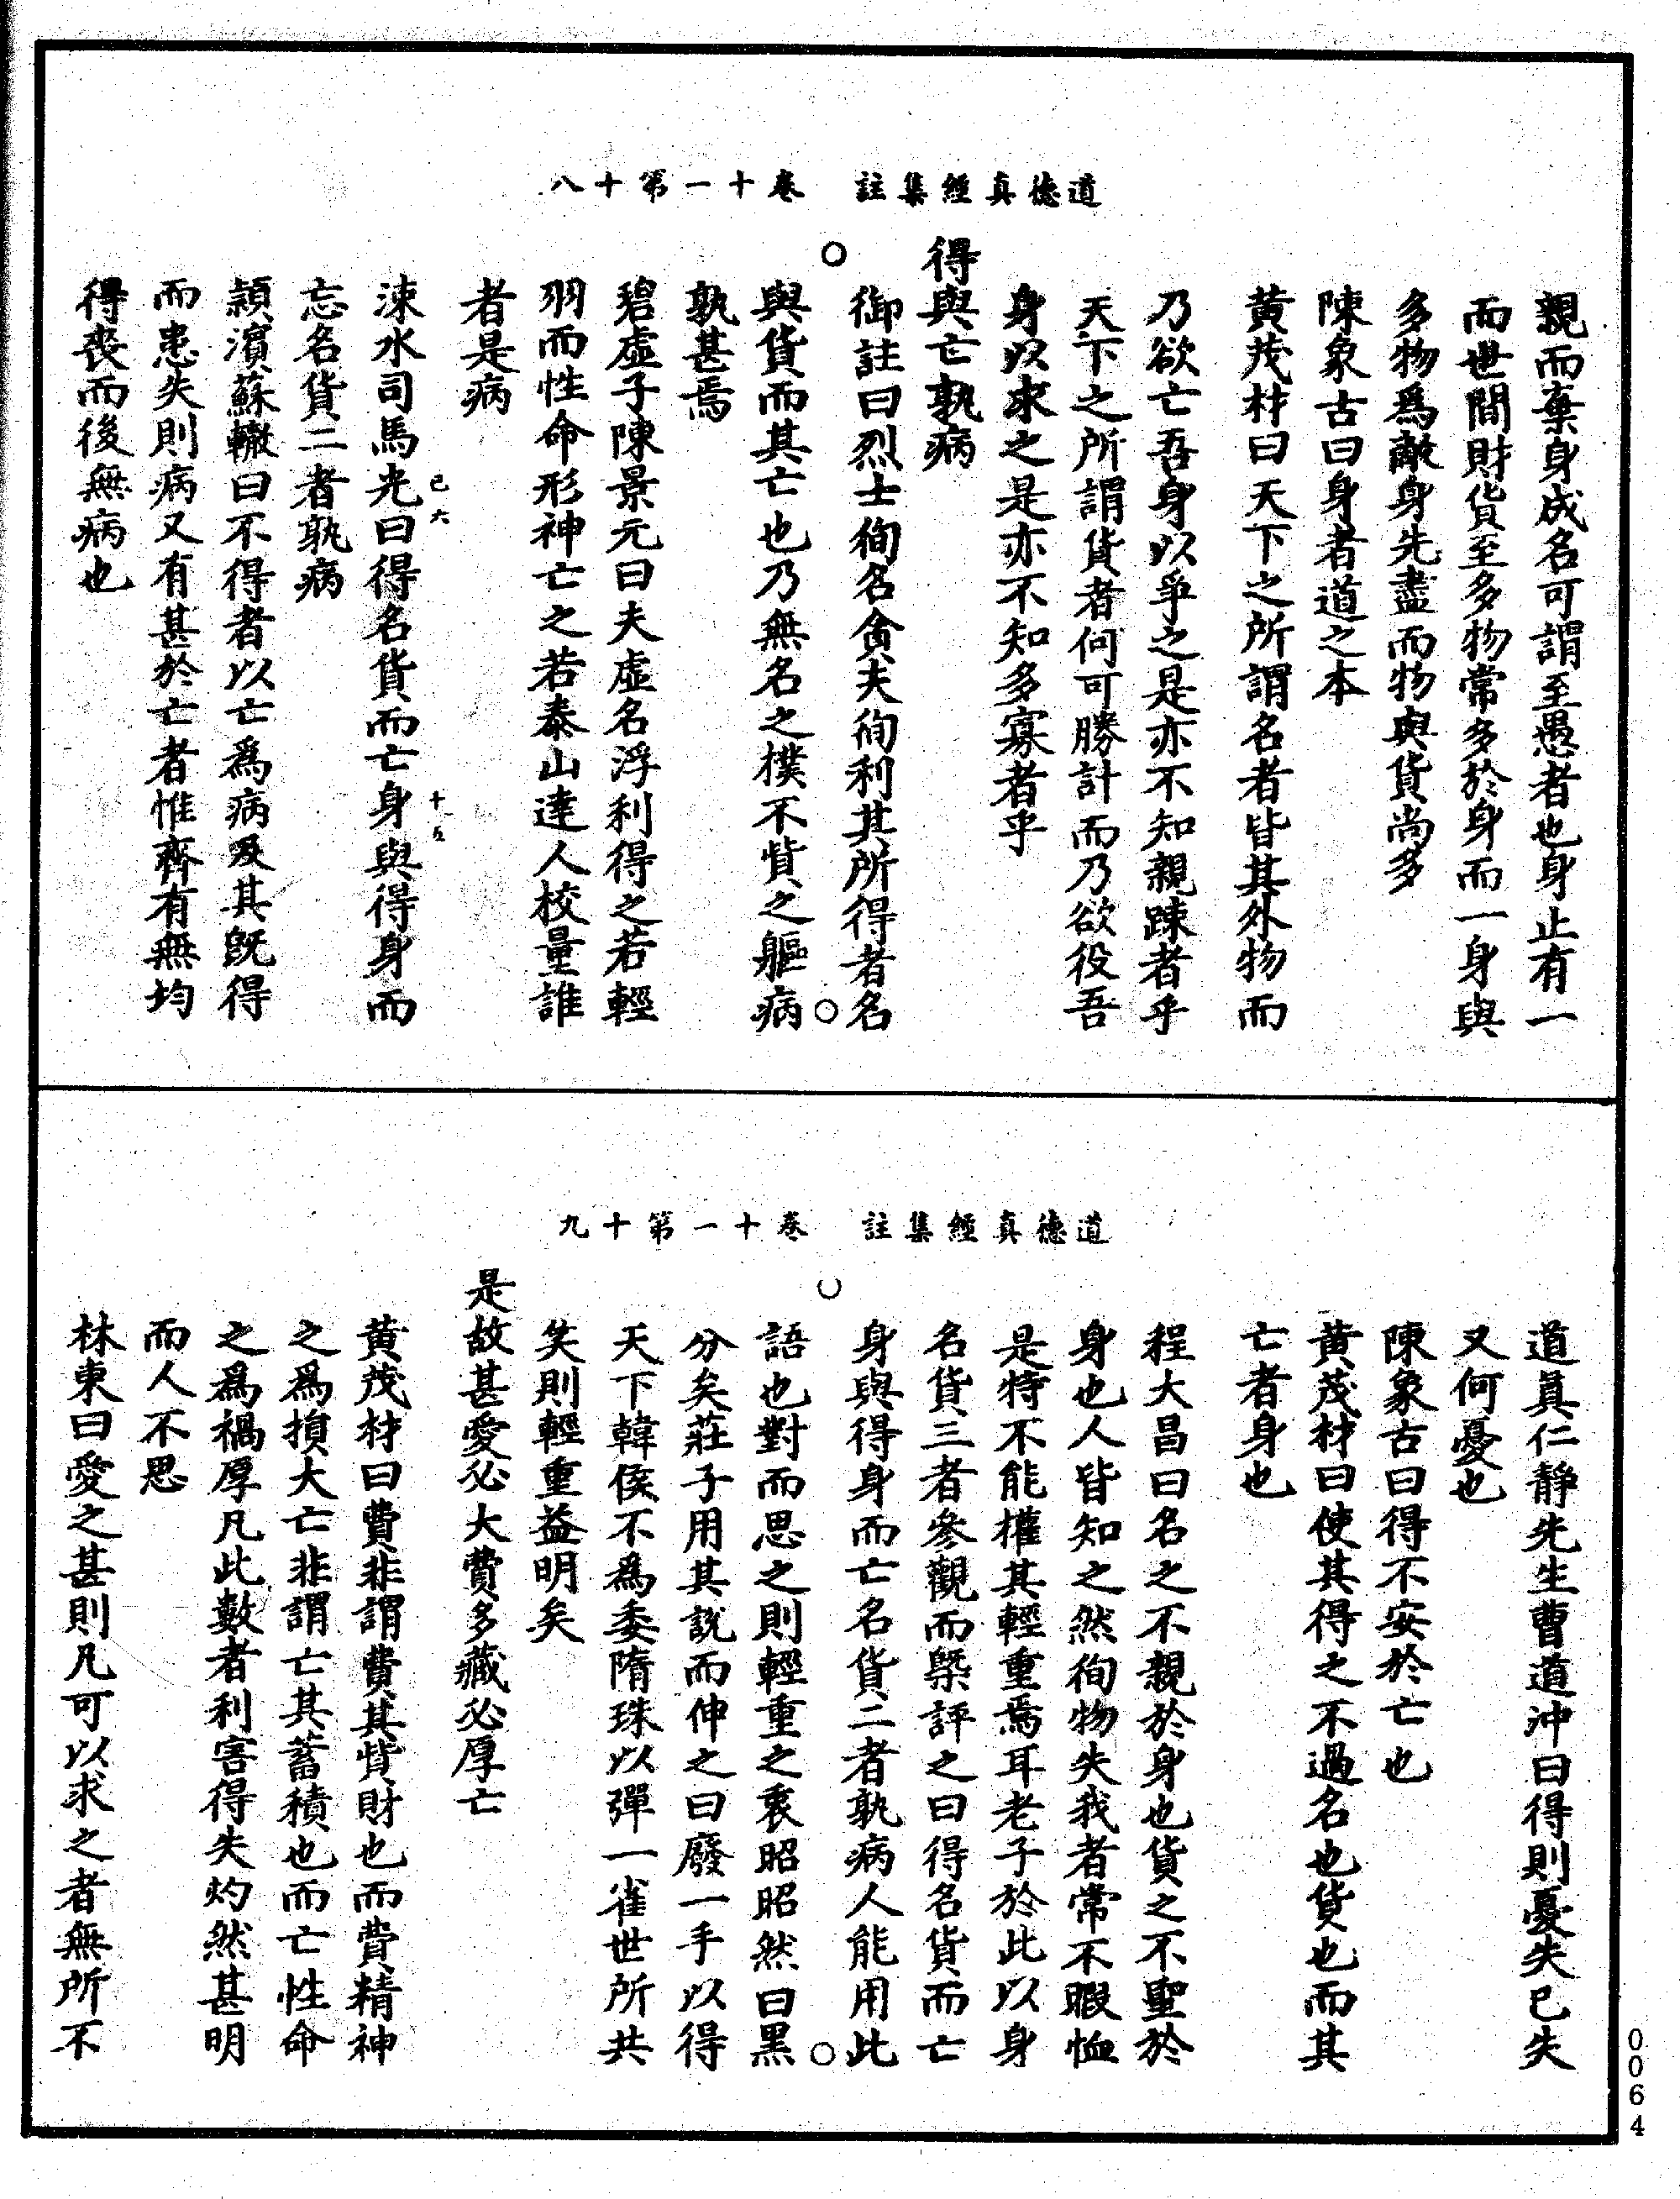 道德真經集註　卷十一第十八
親而棄身成名可謂至愚者也身止有一
而世間財貨至多物常多於身而一身與
多物爲敵身先盡而物與貨尚多
陳象古曰身者道之本
黃茂材曰天下之所謂名者皆其外物而
乃欲亡吾身以爭之是亦不知親踈者乎
天下之所謂貨者何可勝計而乃欲役吾
身以求之是亦不知多寡者乎
得與亡孰病
御註曰烈士徇名貪夫徇利其所得者名
與貨而其亡也乃無名之樸不貲之軀病
孰甚焉
碧虛子陳景元曰夫虛名浮利得之若輕
羽而性命形神亡之若泰山達人校量誰
者是病
涑水司馬光曰得名貨而亡身與得身而
忘名貨二者孰病
潁濱蘇轍曰不得者以亡爲病及其旣得
而患失則病又有甚於亡者惟齊有無均
得喪而後無病也
己六
十五
道德真經集註　卷十一第十九
道眞仁靜先生曹道沖曰得則憂失已失
又何憂也
陳象古曰得不安於亡也
黃茂材曰使其得之不過名也貨也而其
亡者身也
程大昌曰名之不親於身也貨之不聖於
身也人皆知之然徇物失我者常不暇恤
是特不能權其輕重焉耳老子於此以身
名貨三者參觀而槩評之曰得名貨而亡
身與得身而亡名貨二者孰病人能用此
語也對而思之則輕重之衷昭昭然曰黑
分矣莊子用其說而伸之曰廢一手以得
天下韓侯不爲委隋珠以彈一雀世所共
笑則輕重益明矣
是故甚愛必大費多藏必厚亡
黃茂材曰費非謂費其貲財也而費精神
之爲損大亡非謂亡其蓄積也而亡性命
之爲禍厚凡此數者利害得失灼然甚明
而人不思
林東曰愛之甚則凡可以求之者無所不
0064